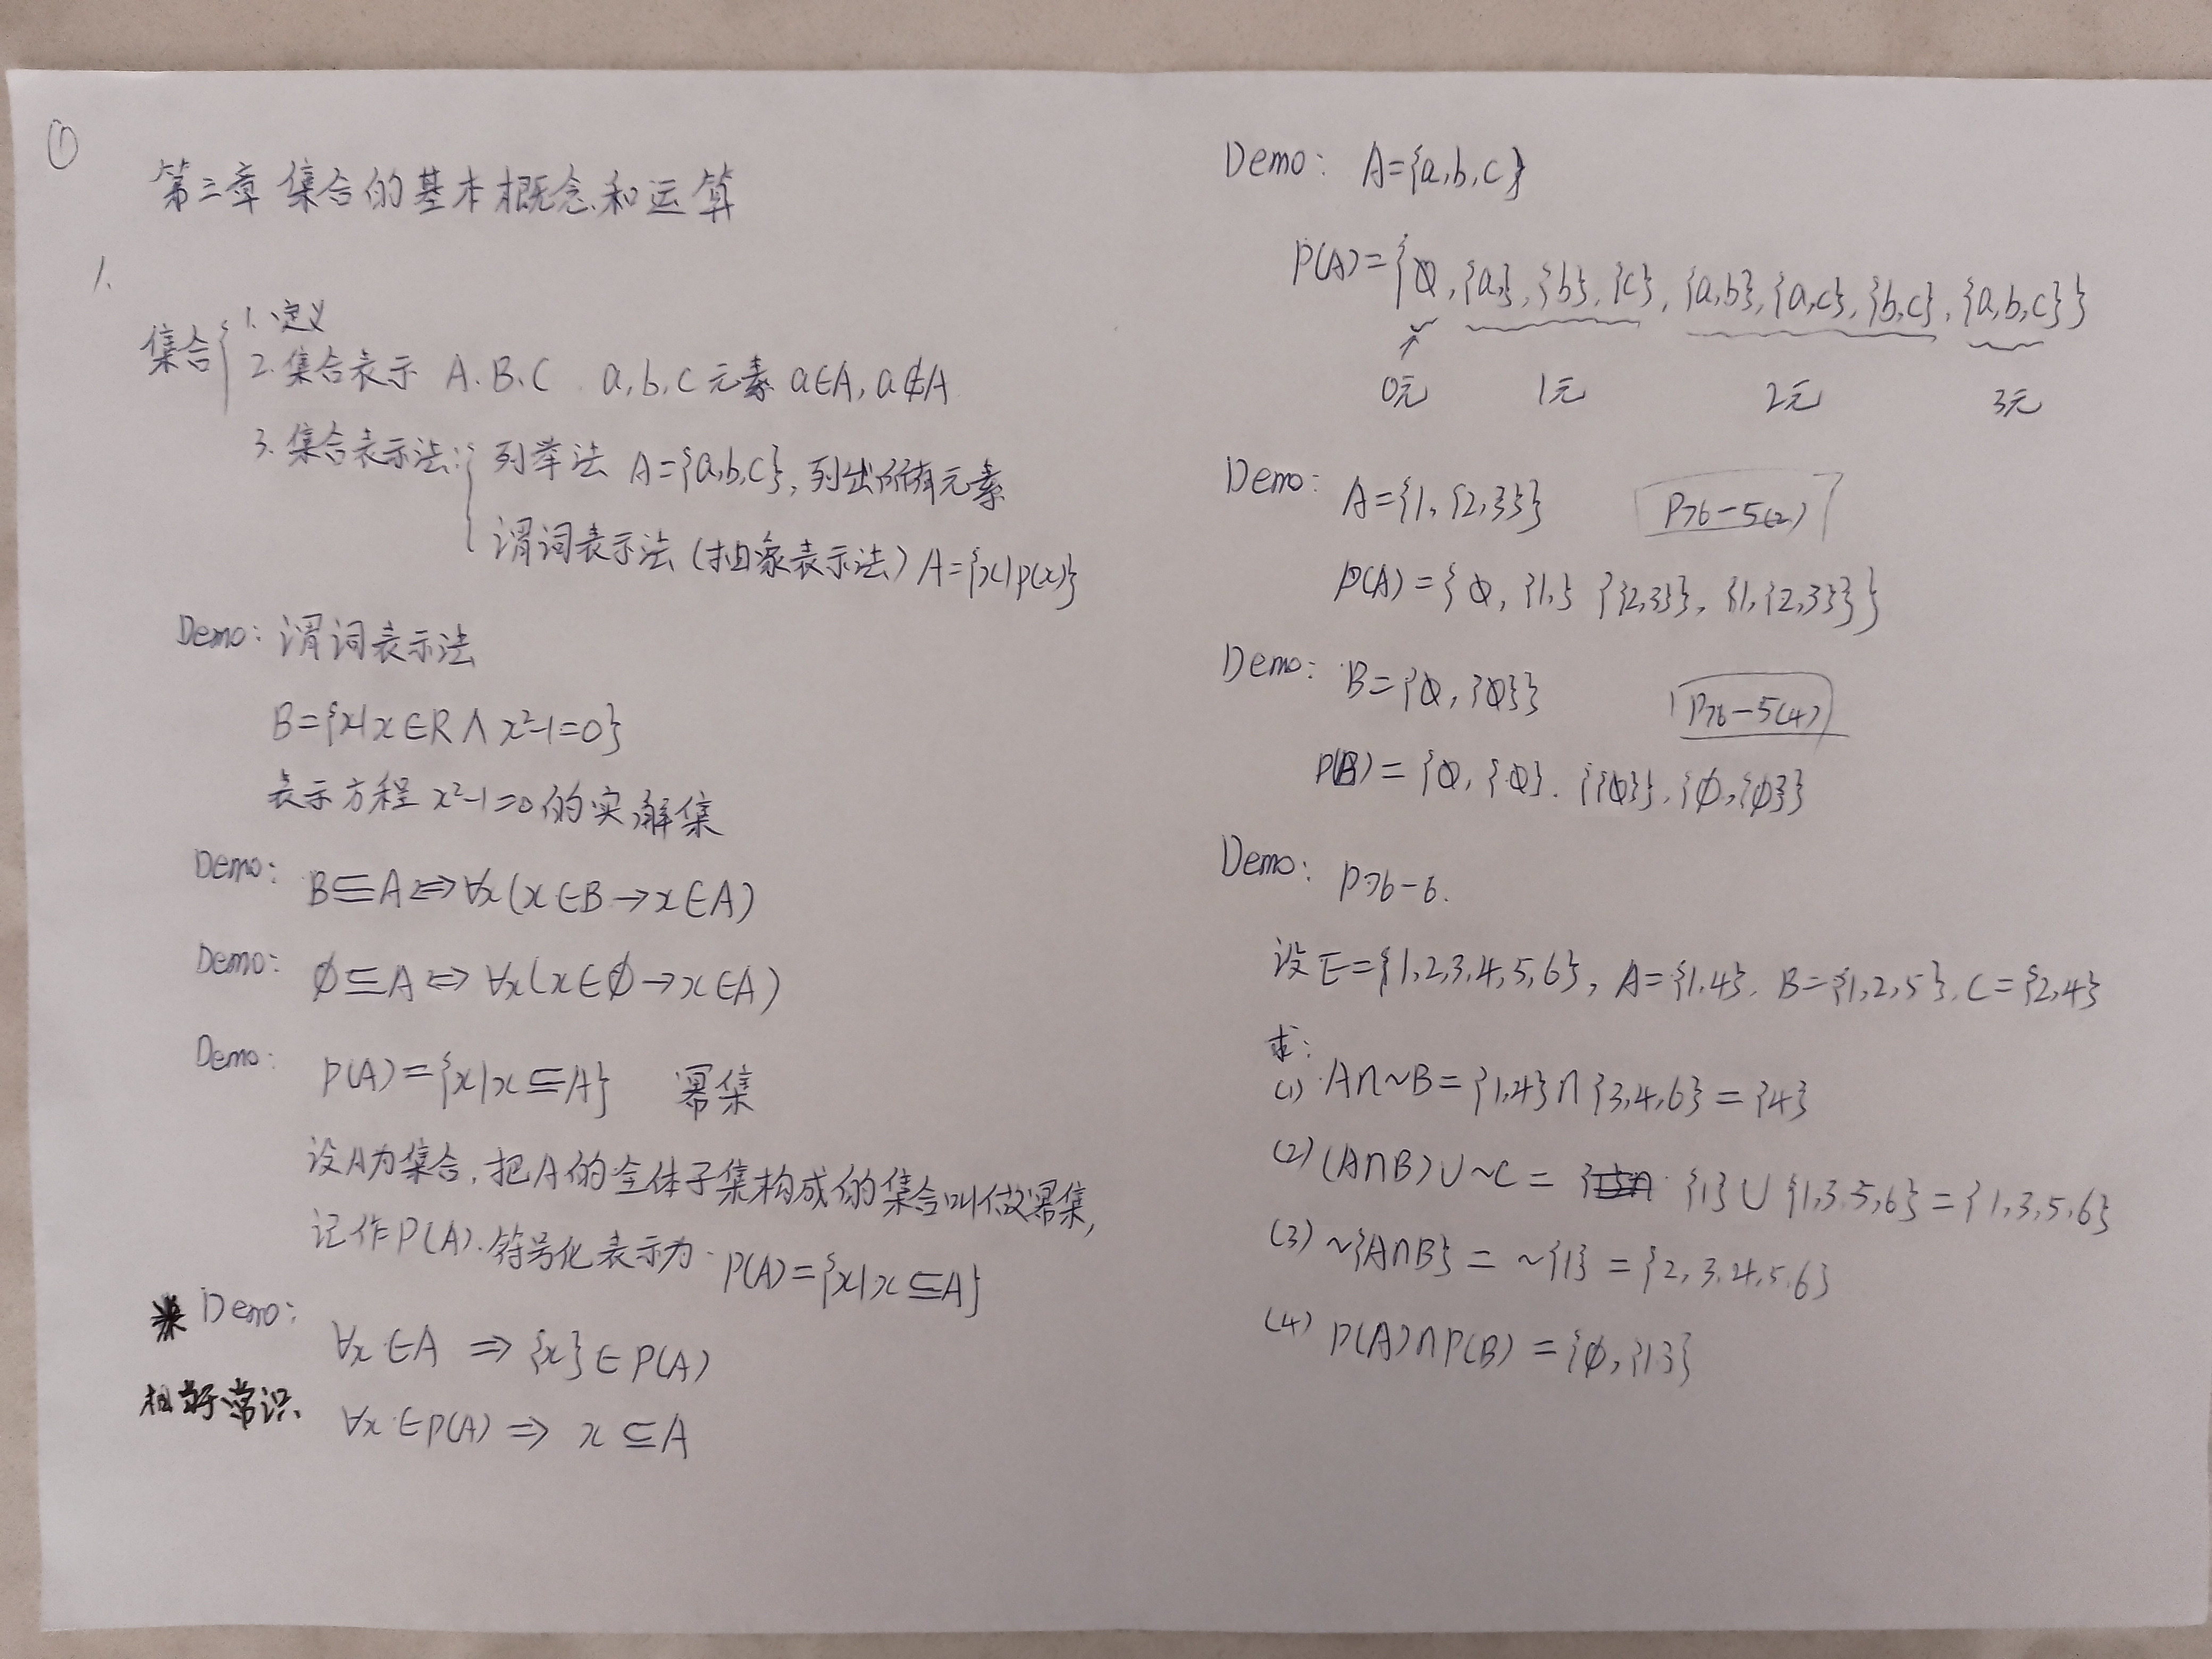 ①
第三章 集合的基本概念和运算
1.
集合 { 1. 定义
2. 集合表示 A.B.C a,b,c 元素 a∈A, a∉A
3. 集合表示法: { 列举法 A={a,b,c}, 列出所有元素
谓词表示法 (抽象表示法) A={x|p(x)}
Demo: 谓词表示法
B={x|x∈R∧x²-1=0}
表示方程 x²-1=0 的实解集
Demo: B⊆A⇔∀x(x∈B→x∈A)
Demo: ∅⊆A⇔∀x(x∈∅→x∈A)
Demo: P(A)={x|x⊆A} 幂集
设A为集合, 把A的全体子集构成的集合叫做幂集,
记作P(A). 符号化表示为 P(A)={x|x⊆A}
* Demo: ∀x∈A ⇒ {x}∈P(A)
常识 ∀x∈P(A) ⇒ x⊆A
Demo: A={a,b,c}
P(A)={∅, {a,}, {b}, {c}, {a,b}, {a,c}, {b,c}, {a,b,c}}
↑
0元 1元 2元 3元
Demo: A={1, {2,3}} P76-5(2)
P(A)={∅, {1,} {{2,3}}, {1,{2,3}}}
Demo: B={∅, {∅}} P76-5(4)
P(B)={∅, {∅}. {{∅}}, {∅,{∅}}}
Demo: P76-6.
设E={1,2,3,4,5,6}, A={1,4}. B={1,2,5}. C={2,4}
求:
(1) A∩~B={1,4}∩{3,4,6}={4}
(2) (A∩B)∪~C= {1}∪{1,3,5,6}={1,3,5,6}
(3) ~{A∩B}=~{1}={2,3,4,5,6}
(4) P(A)∩P(B)={∅,{1}}